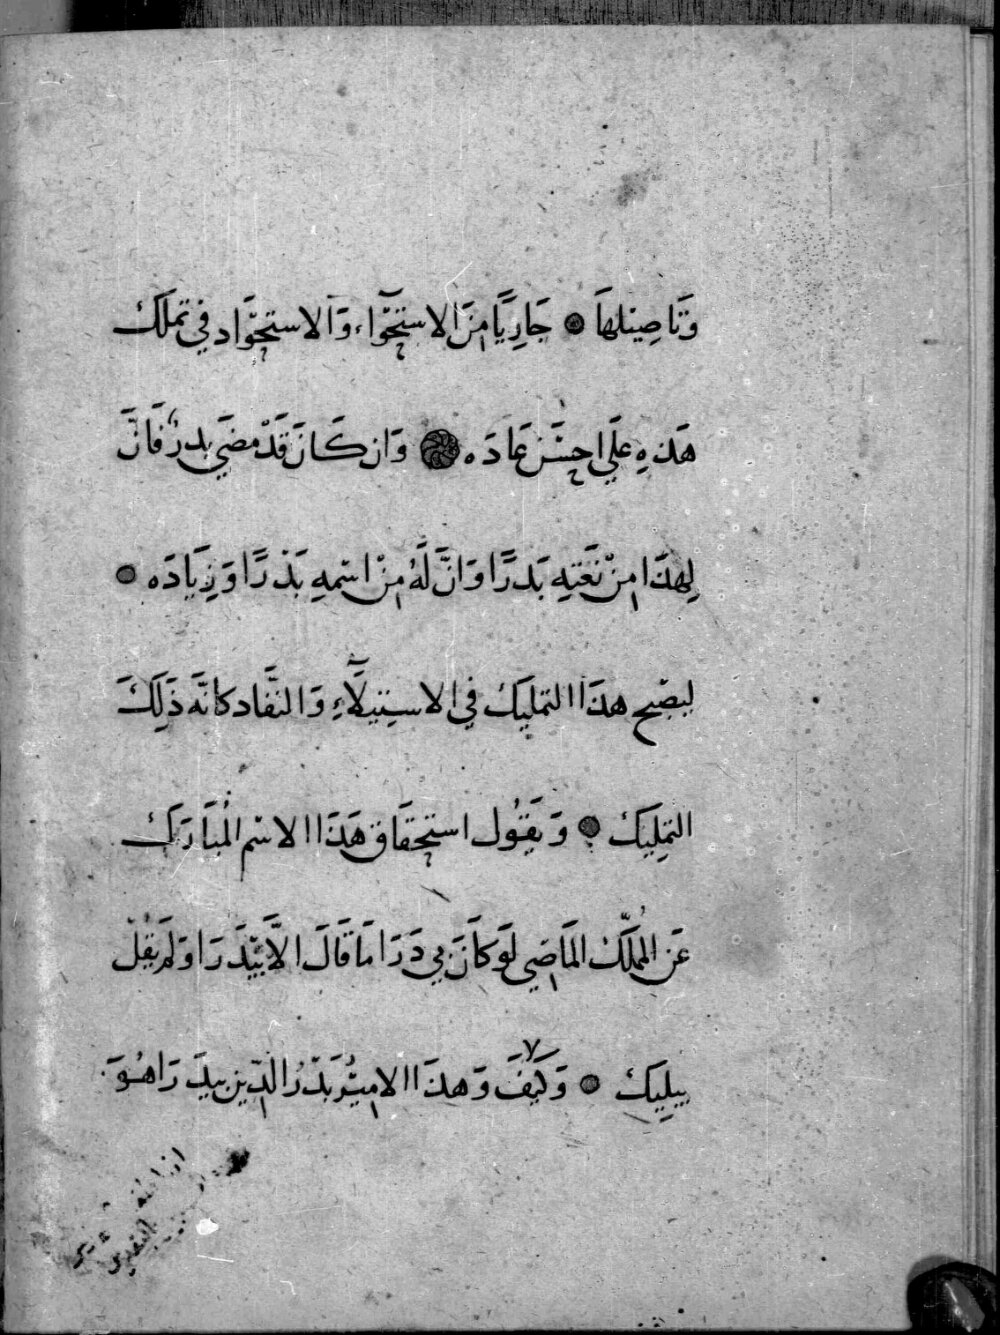 وَتَاصِيْلهَا جَارِيًا مِنَ الاسْتِحْوَاءِ وَالاستحْوَاد في تملكَ
هَذِهِ عَلَى احْسَن عَادَه وَان كَانَ قَدْ مضَى بدرٌ فَانَّ
لِهذَا مِنْ نَعْتِهِ بَدرًا وَانَّ لَهُ مِنْ اسْمهِ بَدْرًا وَزِيَادَه
ليصْبح هذَا التمليَك في الاسْتِيلَاءِ وَالنفَاد كانَّه ذَلِكَ
التمِليَك وَيَقُول استحْقَاق هَذَا الاسْم المُبَارَك
عَن المُملَّك المَاضِي لَو كَانَ بي دَرَا مَا قَالَ الَّا بَيْدَرَا وَلَم يَقُلْ
بيلِيَك وَكَيْفَ وَهذَا الامِيْرُ بَدْرُ الدّين بيدَرَا هُوَ